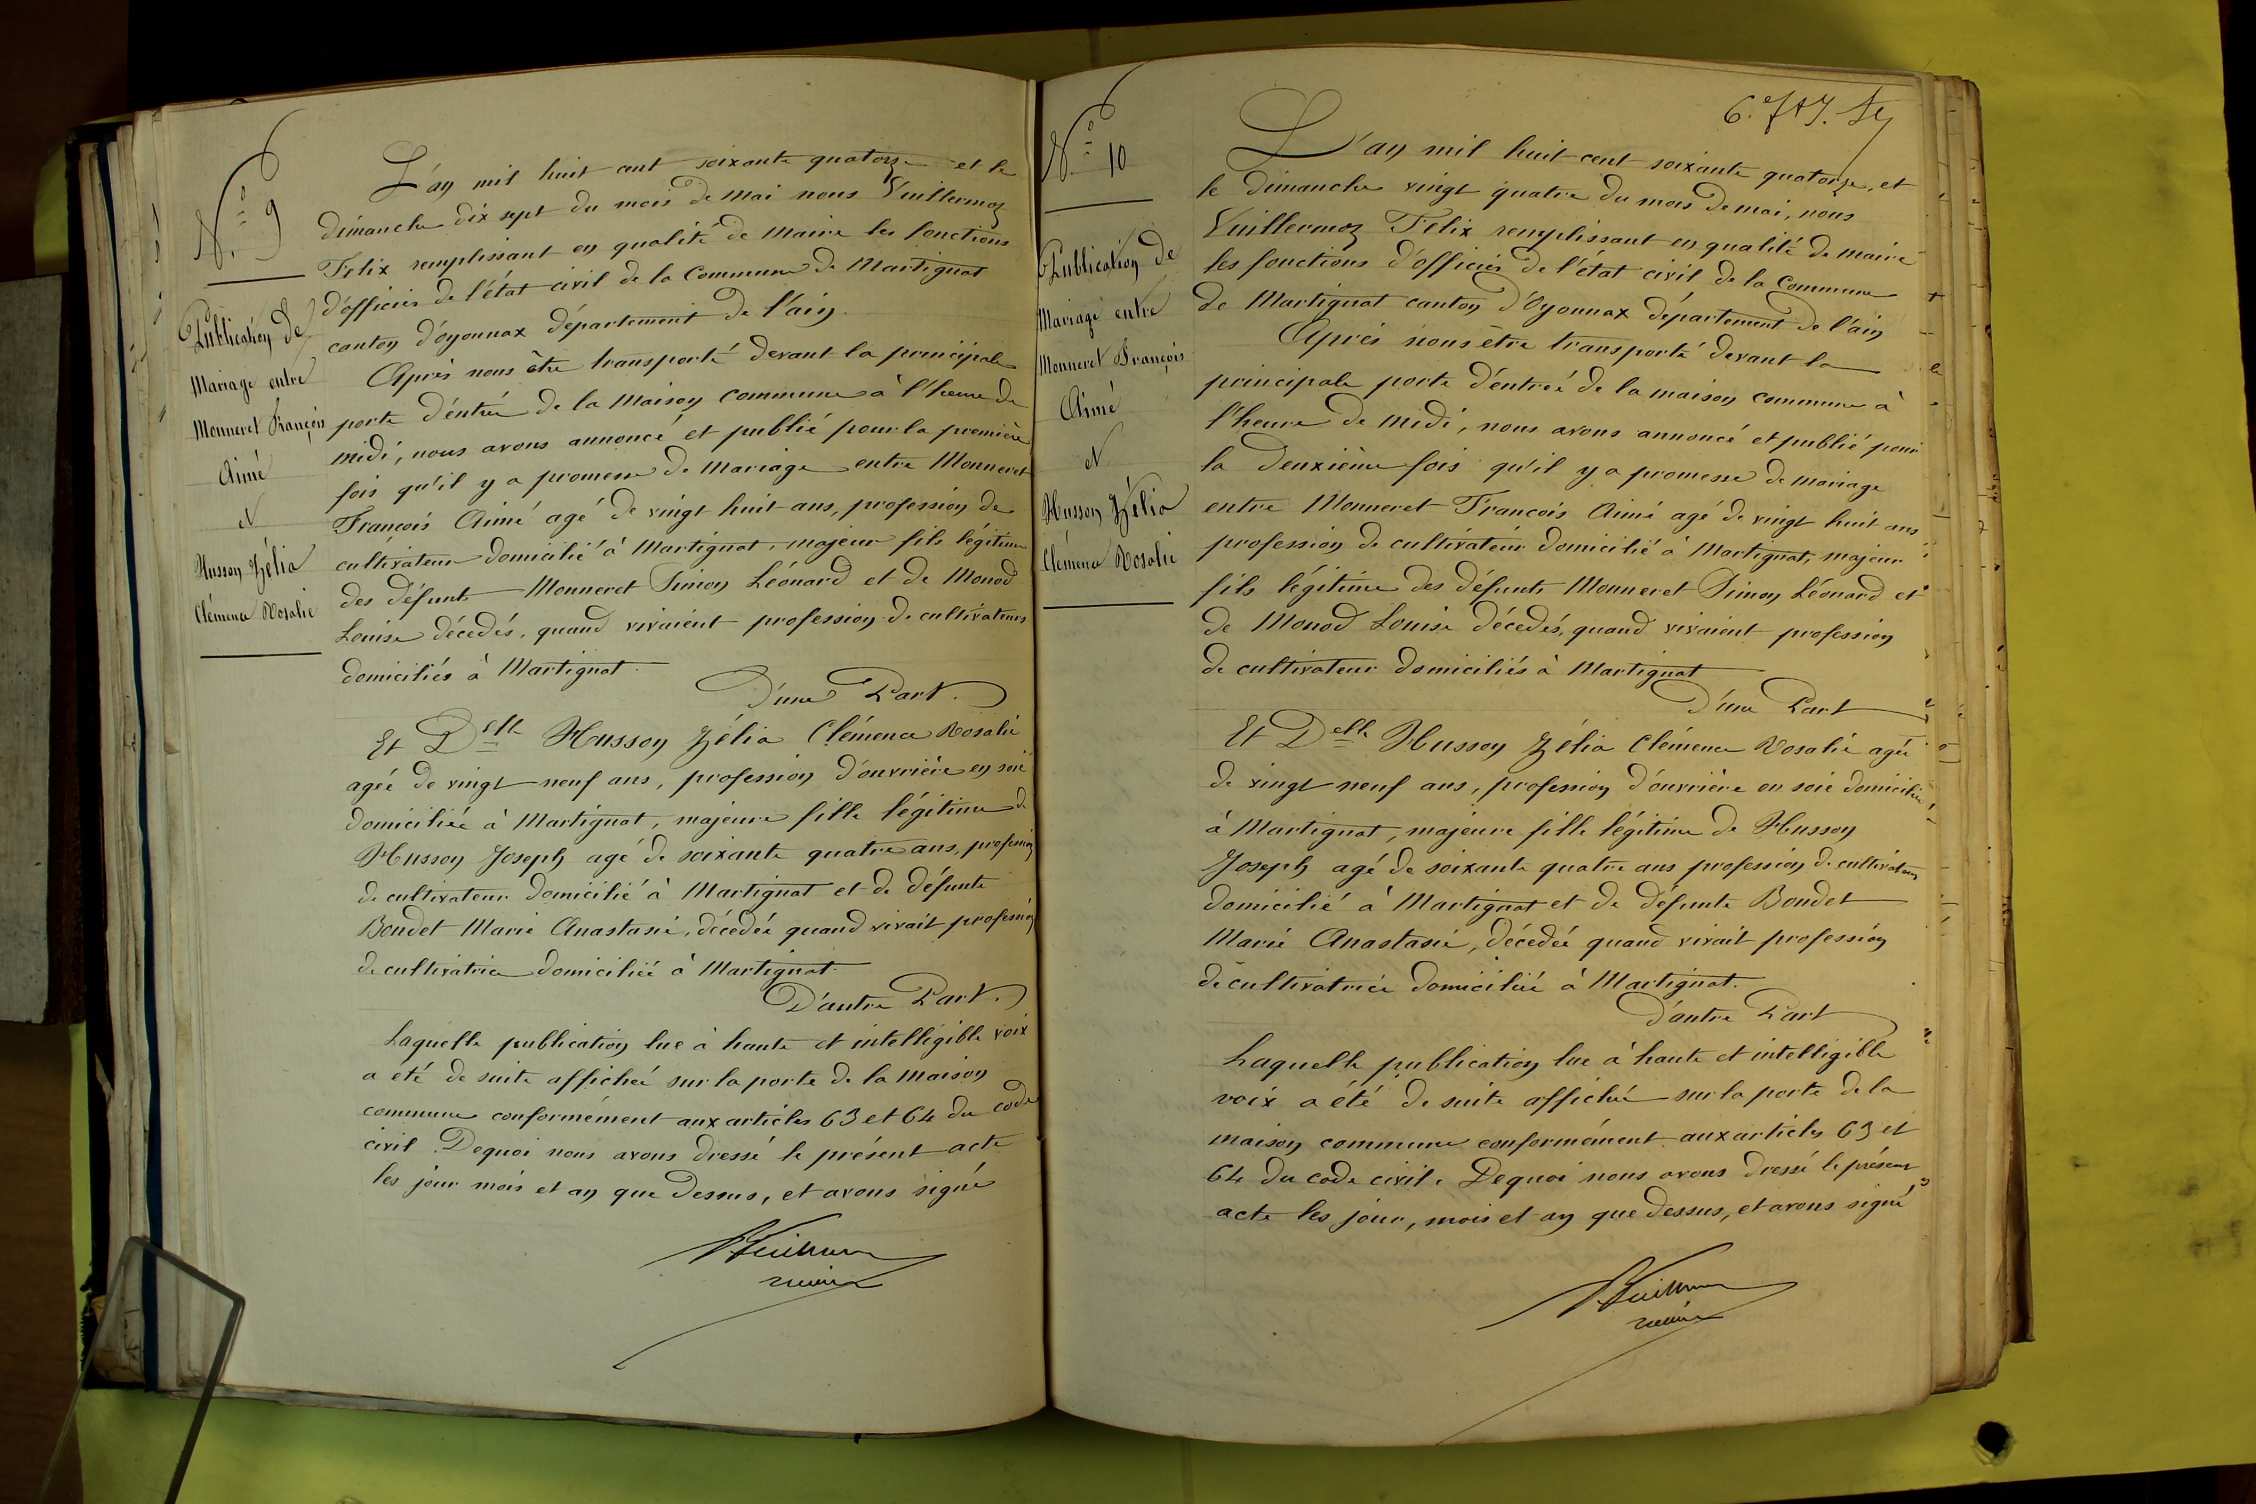 N.° 9
Publication de
Mariage entre
Monneret François
Aimé
et
Husson Zélia
Clémence Rosalie
L'an mil huit cent soixante quatorze et le
dimanche dix sept du mois de mai nous Vuillermoz
Félix remplissant en qualité de Maire les fonctions
d'officier de l'état civil de la Commune de Martignat
canton d'oyonnax département de l'ain.
Après nous être transporté devant la principale
porte d'entrée de la Maison commune à l'heure de
midi, nous avons annoncé et publié pour la première
fois qu'il y a promesse de Mariage entre Monneret
François Aimé agé de vingt huit ans, profession de
cultivateur domicilié à Martignat, majeur fils légitime
des défunts Monneret Simon Léonard et de Monod
Louise décedés, quand vivaient profession de cultivateurs
domiciliés à Martignat.
D'une Part.
Et Delle Husson Zélia Clémence Rosalie
agée de vingt neuf ans, profession d'ouvrière en soie
domiciliée à Martignat, majeure fille légitime de
Husson Joseph agé de soixante quatre ans, profession
de cultivateur domicilié à Martignat et de défunte
Bondet Marie Anastasie, décedée quand vivait profession
de cultivatrice domiciliée à Martignat.
D'autre Part.
Laquelle publication lue à haute et intelligible voix
a eté de suite affichée sur la porte de la Maison
commune conformément aux articles 63 et 64 du code
civil. Dequoi nous avons dressé le présent acte
les jour mois et an que dessus, et avons signé
maire
6.e
N.° 10
Publication de
Mariage entre
Monneret François
Aimé
et
Husson Zélia
Clémence Rosalie
L'an mil huit cent soixante quatorze, et
le dimanche vingt quatre du mois de mai, nous
Vuillermoz Félix remplissant en qualité de maire
les fonctions d'officier de l'état civil de la Commune
de Martignat canton d'Oyonnax département de l'ain
Après nous être transporté devant la
principale porte d'entrée de la maison commune à
l'heure de midi, nous avons annoncé et publié pour
la deuxième fois qu'il y a promesse de mariage
entre Monneret François Aimé agé de vingt huit ans
profession de cultivateur domicilié à Martignat, majeur
fils légitime des défunts Monneret Simon Léonard et
de Monod Louise décedés, quand vivaient profession
de cultivateur domiciliés à Martignat
D'une Part
Et Delle Husson Zélia Clémence Rosalie agée
de vingt neuf ans, profession d'ouvrière en soie domiciliée
à Martignat, majeure fille légitime de Husson
Joseph agé de soixante quatre ans profession de cultivateur
domicilié à Martignat et de défunte Bondet
Marie Anastasie, décedée quand vivait profession
de cultivatrice domiciliée à Martignat.
D'autre Part
Laquelle publication lue à haute et intelligible
voix a été de suite affichée sur la porte de la
maison commune conformément aux articles 63 et
64 du code civil. Dequoi nous avons dressé le présent
acte les jour, mois et an que dessus, et avons signé
maire